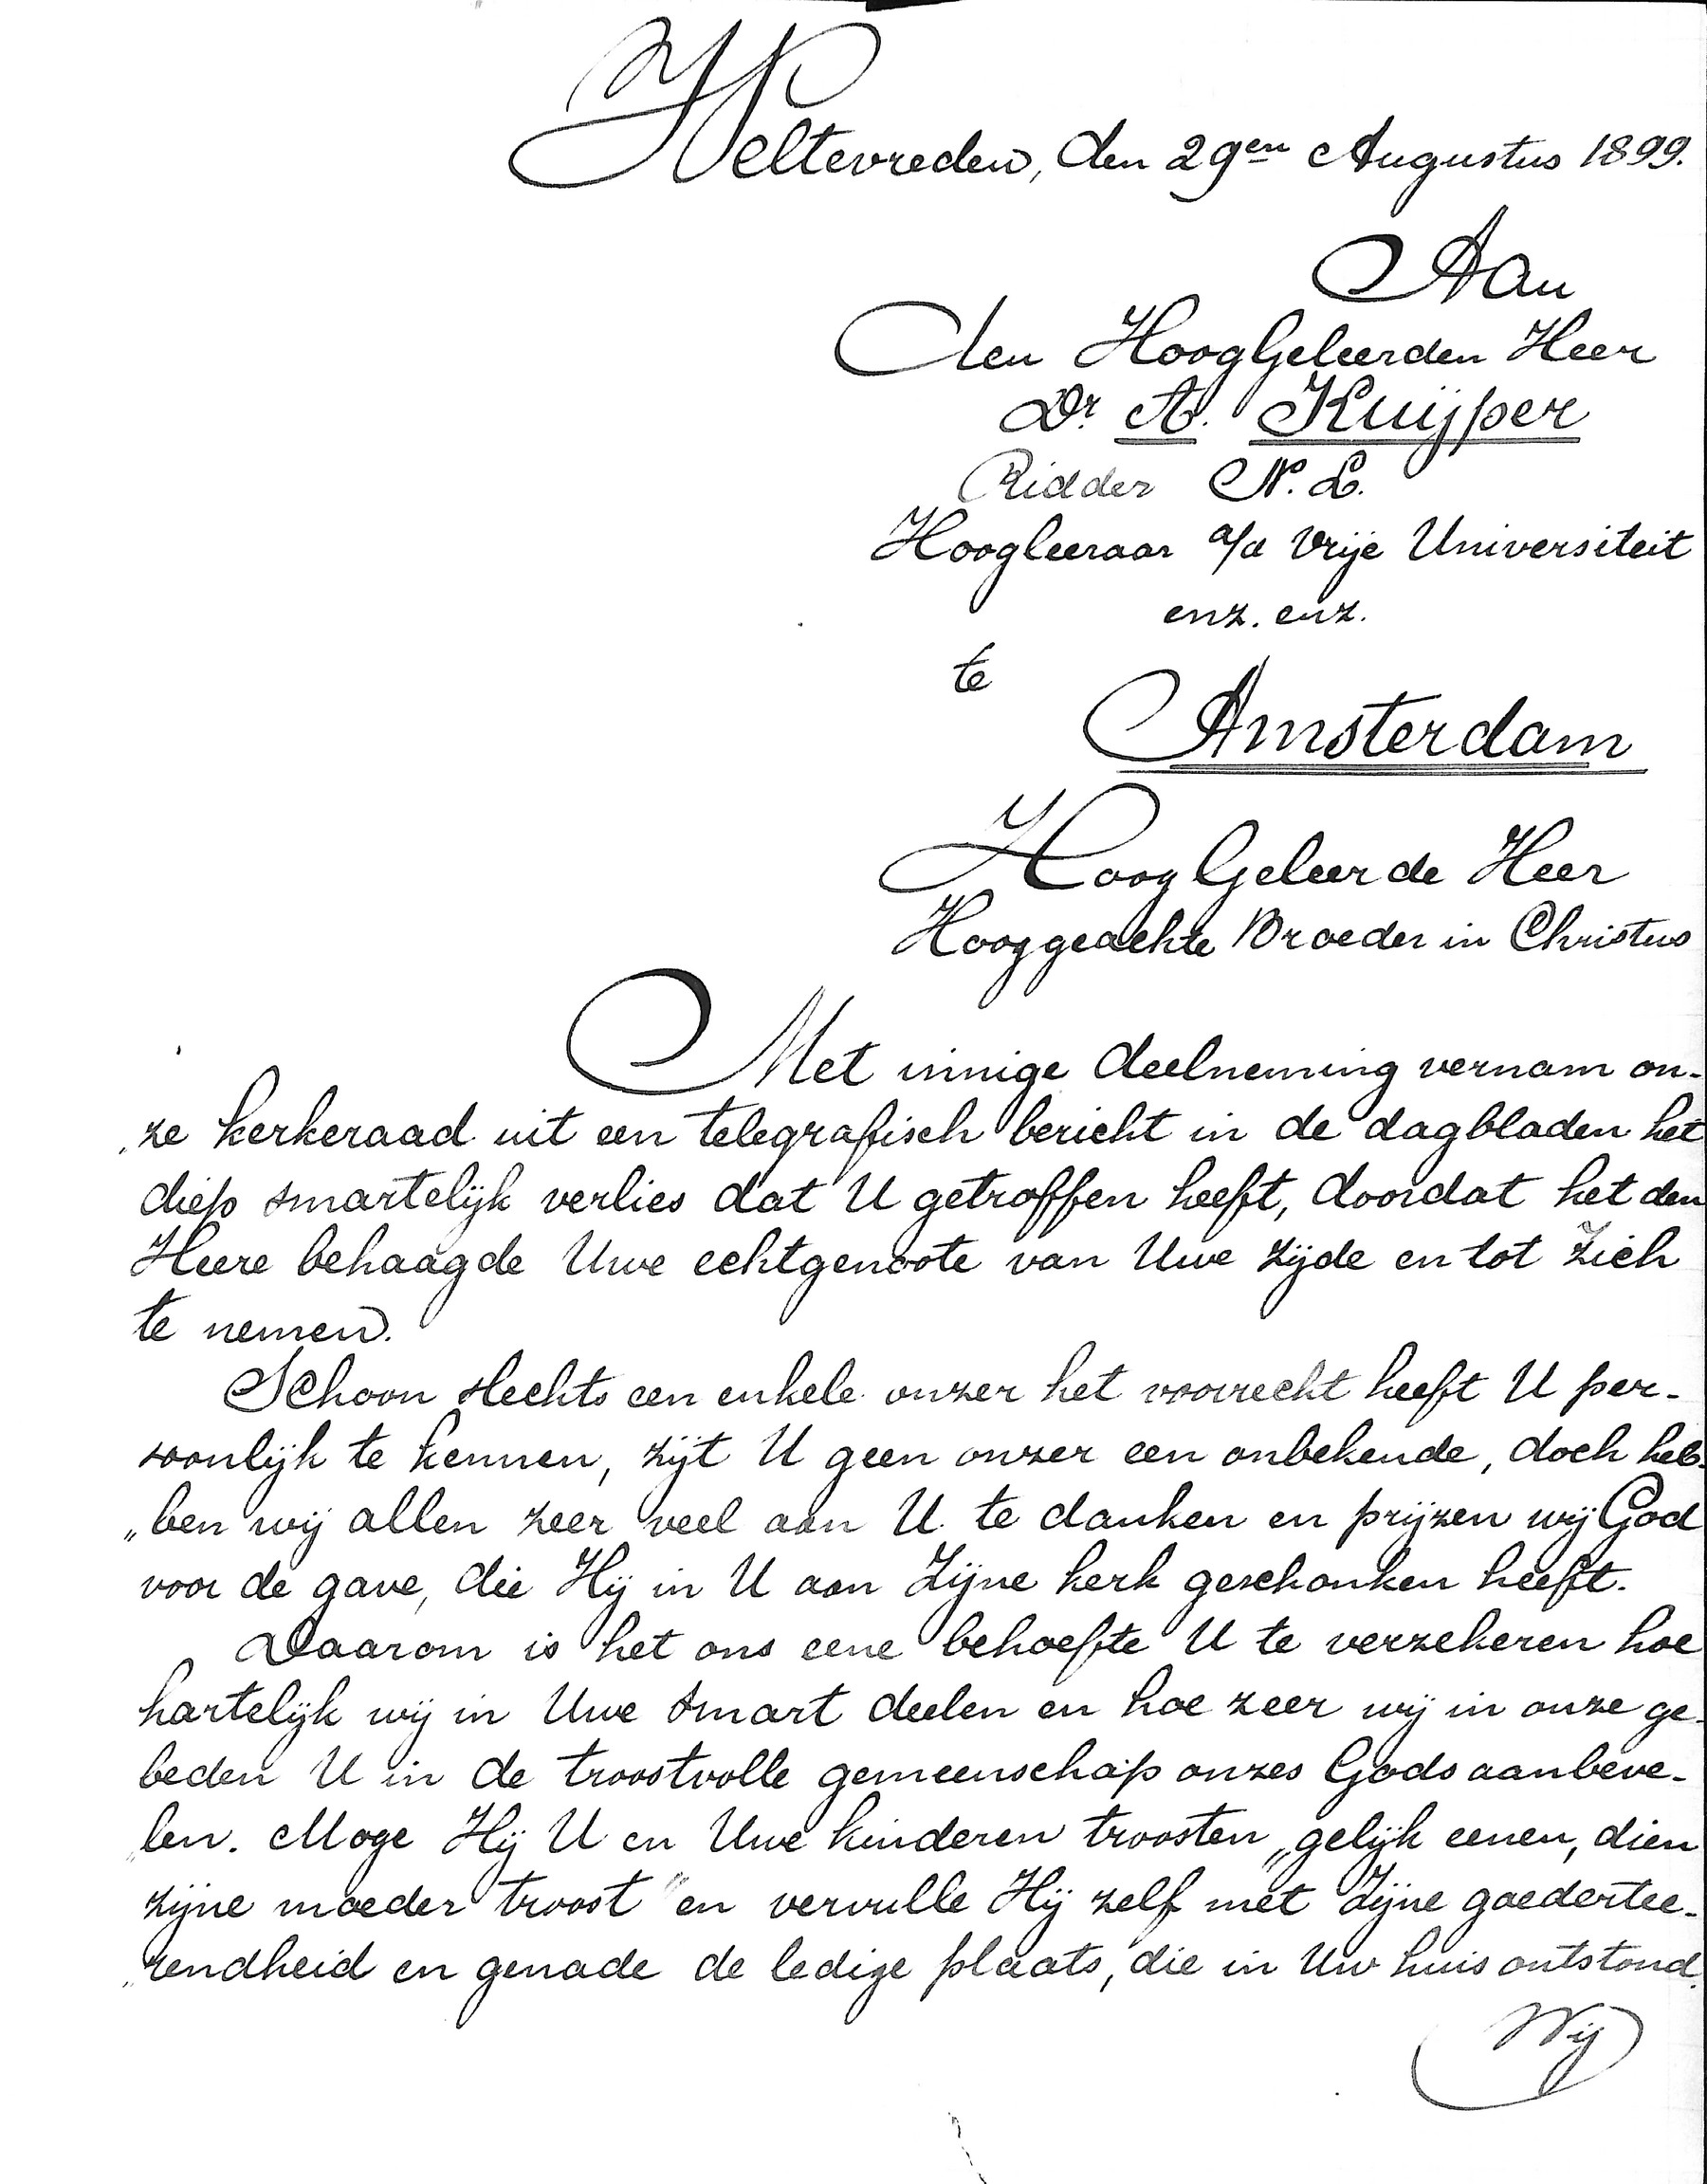 Weltevreden, den 29en Augustus 1899.
Aan
den HoogGeleerden Heer
Dr. A. Kuijper
Ridder N. L.
Hoogleeraar a/d Vrije Universiteit
enz. enz.
te
Amsterdam
HoogGeleerde Heer
Hooggeachte Broeder in Christus
Met innige deelneming vernam on-
ze kerkeraad uit een telegrafisch bericht in de dagbladen het
diep smartelijk verlies dat U getroffen heeft, doordat het den
Heere behaagde Uwe echtgenoote van Uwe zijde en tot Zich
te nemen.
Schoon slechts een enkele onzer het voorrecht heeft U per-
soonlijk te kennen, zijt U geen onzer een onbekende, doch heb-
„ben wij allen zeer veel aan U te danken en prijzen wij God
voor de gave, die Hij in U aan Zijne kerk geschonken heeft.
Daarom is het ons eene behoefte U te verzekeren hoe
hartelijk wij in Uwe smart deelen en hoe zeer wij in onze ge-
beden U in de troostvolle gemeenschap onzes Gods aanbeve-
„len. Moge Hij U en Uwe kinderen troosten „gelijk eenen, dien
zijne moeder troost" en vervulle Hij zelf met Zijne goedertie-
„rendheid en genade de ledige plaats, die in Uw huis ontstond.
Wij